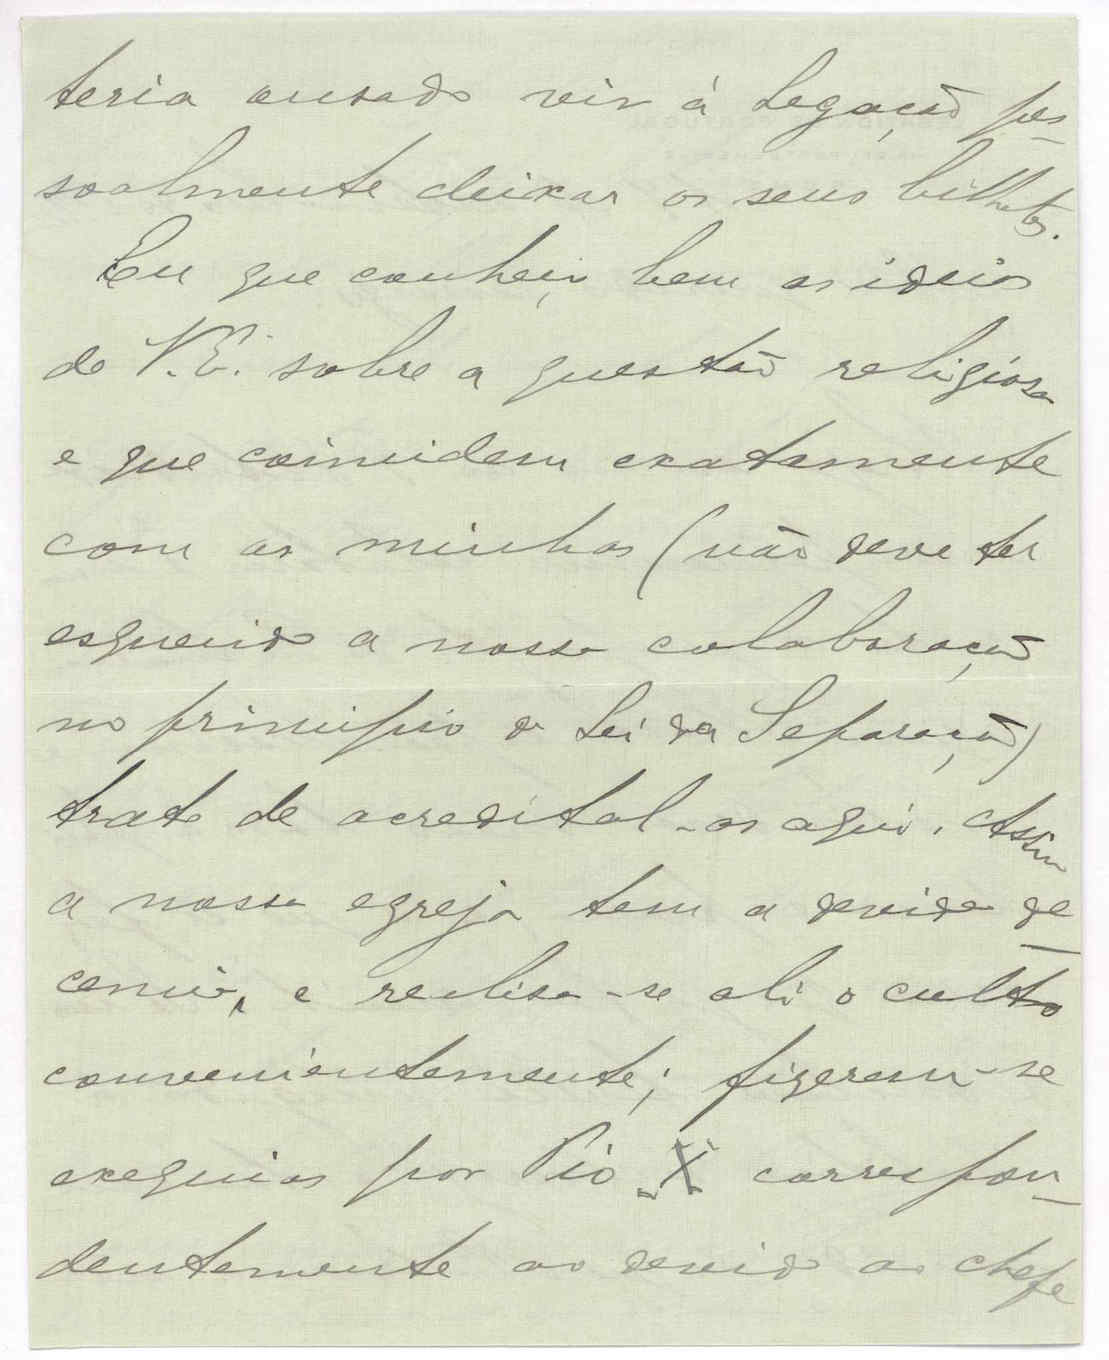 teria ousado vir á Legação pes-
soalmente deixar os seus bilhetes.
Eu que conheço bem as ideias
de V. Ex.ª sobre a questão religiosa
e que coincidem exatamente
com as minhas (não deve ter
esquecido a nossa colaboração
no principio da Lei da Separação)
trato de acredital-as aqui. Assim
a nossa egreja tem a devida de-
cencia, e realisa-se ali o culto
convenientemente; fizeram-se
exequias por Pio X correspon-
dentemente ao devido ao chefe